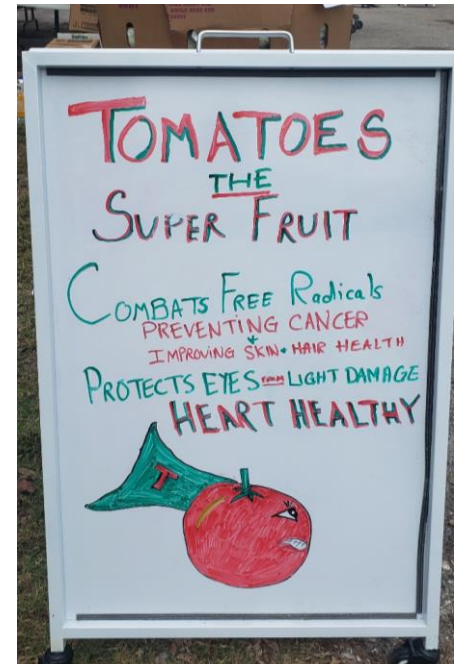 TOMATOES
THE
SUPER FRUIT
COMBATS FREE RadicalS
PREVENTING CANCER
+
IMPROVING SKIN + HAIR HEALTH
PROTECTS EYES FROM LIGHT DAMAGE
HEART HEALTHY
T